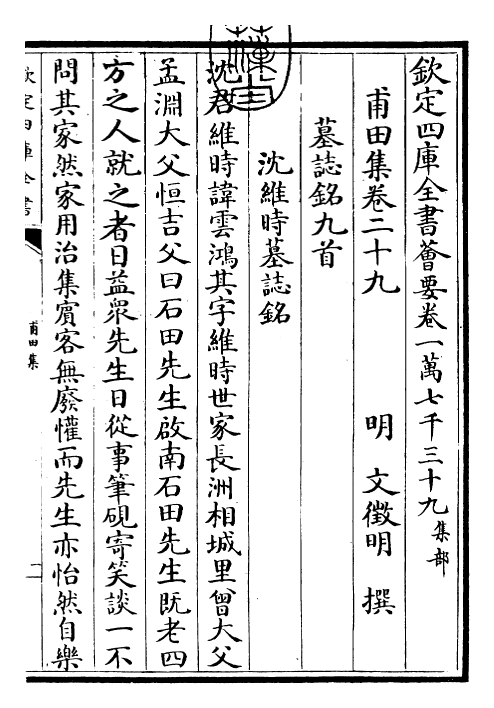 欽定四庫全書薈要卷一萬七千三十九 集部
甫田集卷二十九 明 文徵明 撰
墓誌銘九首
沈維時墓誌銘
沈君維時諱雲鴻其字維時世家長洲相城里曾大父
孟淵大父恒吉父曰石田先生啟南石田先生既老四
方之人就之者日益衆先生日從事筆硯寄笑談一不
問其家然家用治集賓客無廢懽而先生亦怡然自樂
欽定四庫全書
甫田集